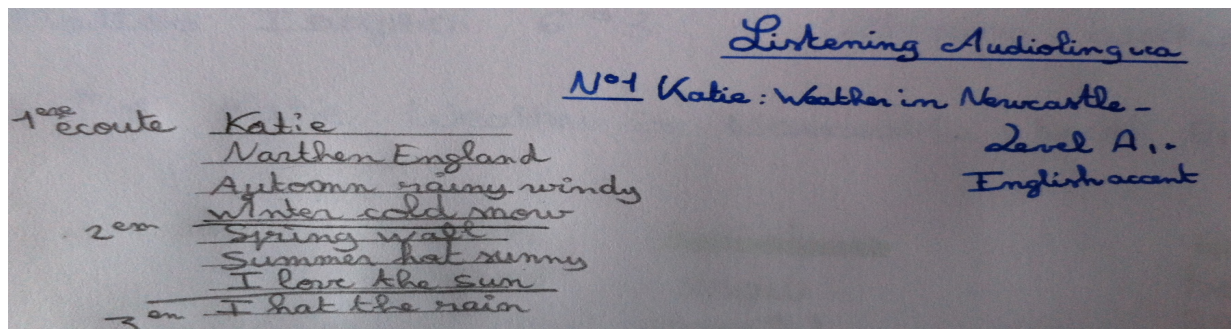 Listening Audiolingua
N°1 Katie : Weather in Newcastle -
Level A1.
English accent
1ere écoute Katie
Narthen England
Autoomn rainy windy
Winter cold snow
2em Spring wall
Summer hot sunny
I love the sun
3em I hat the rain